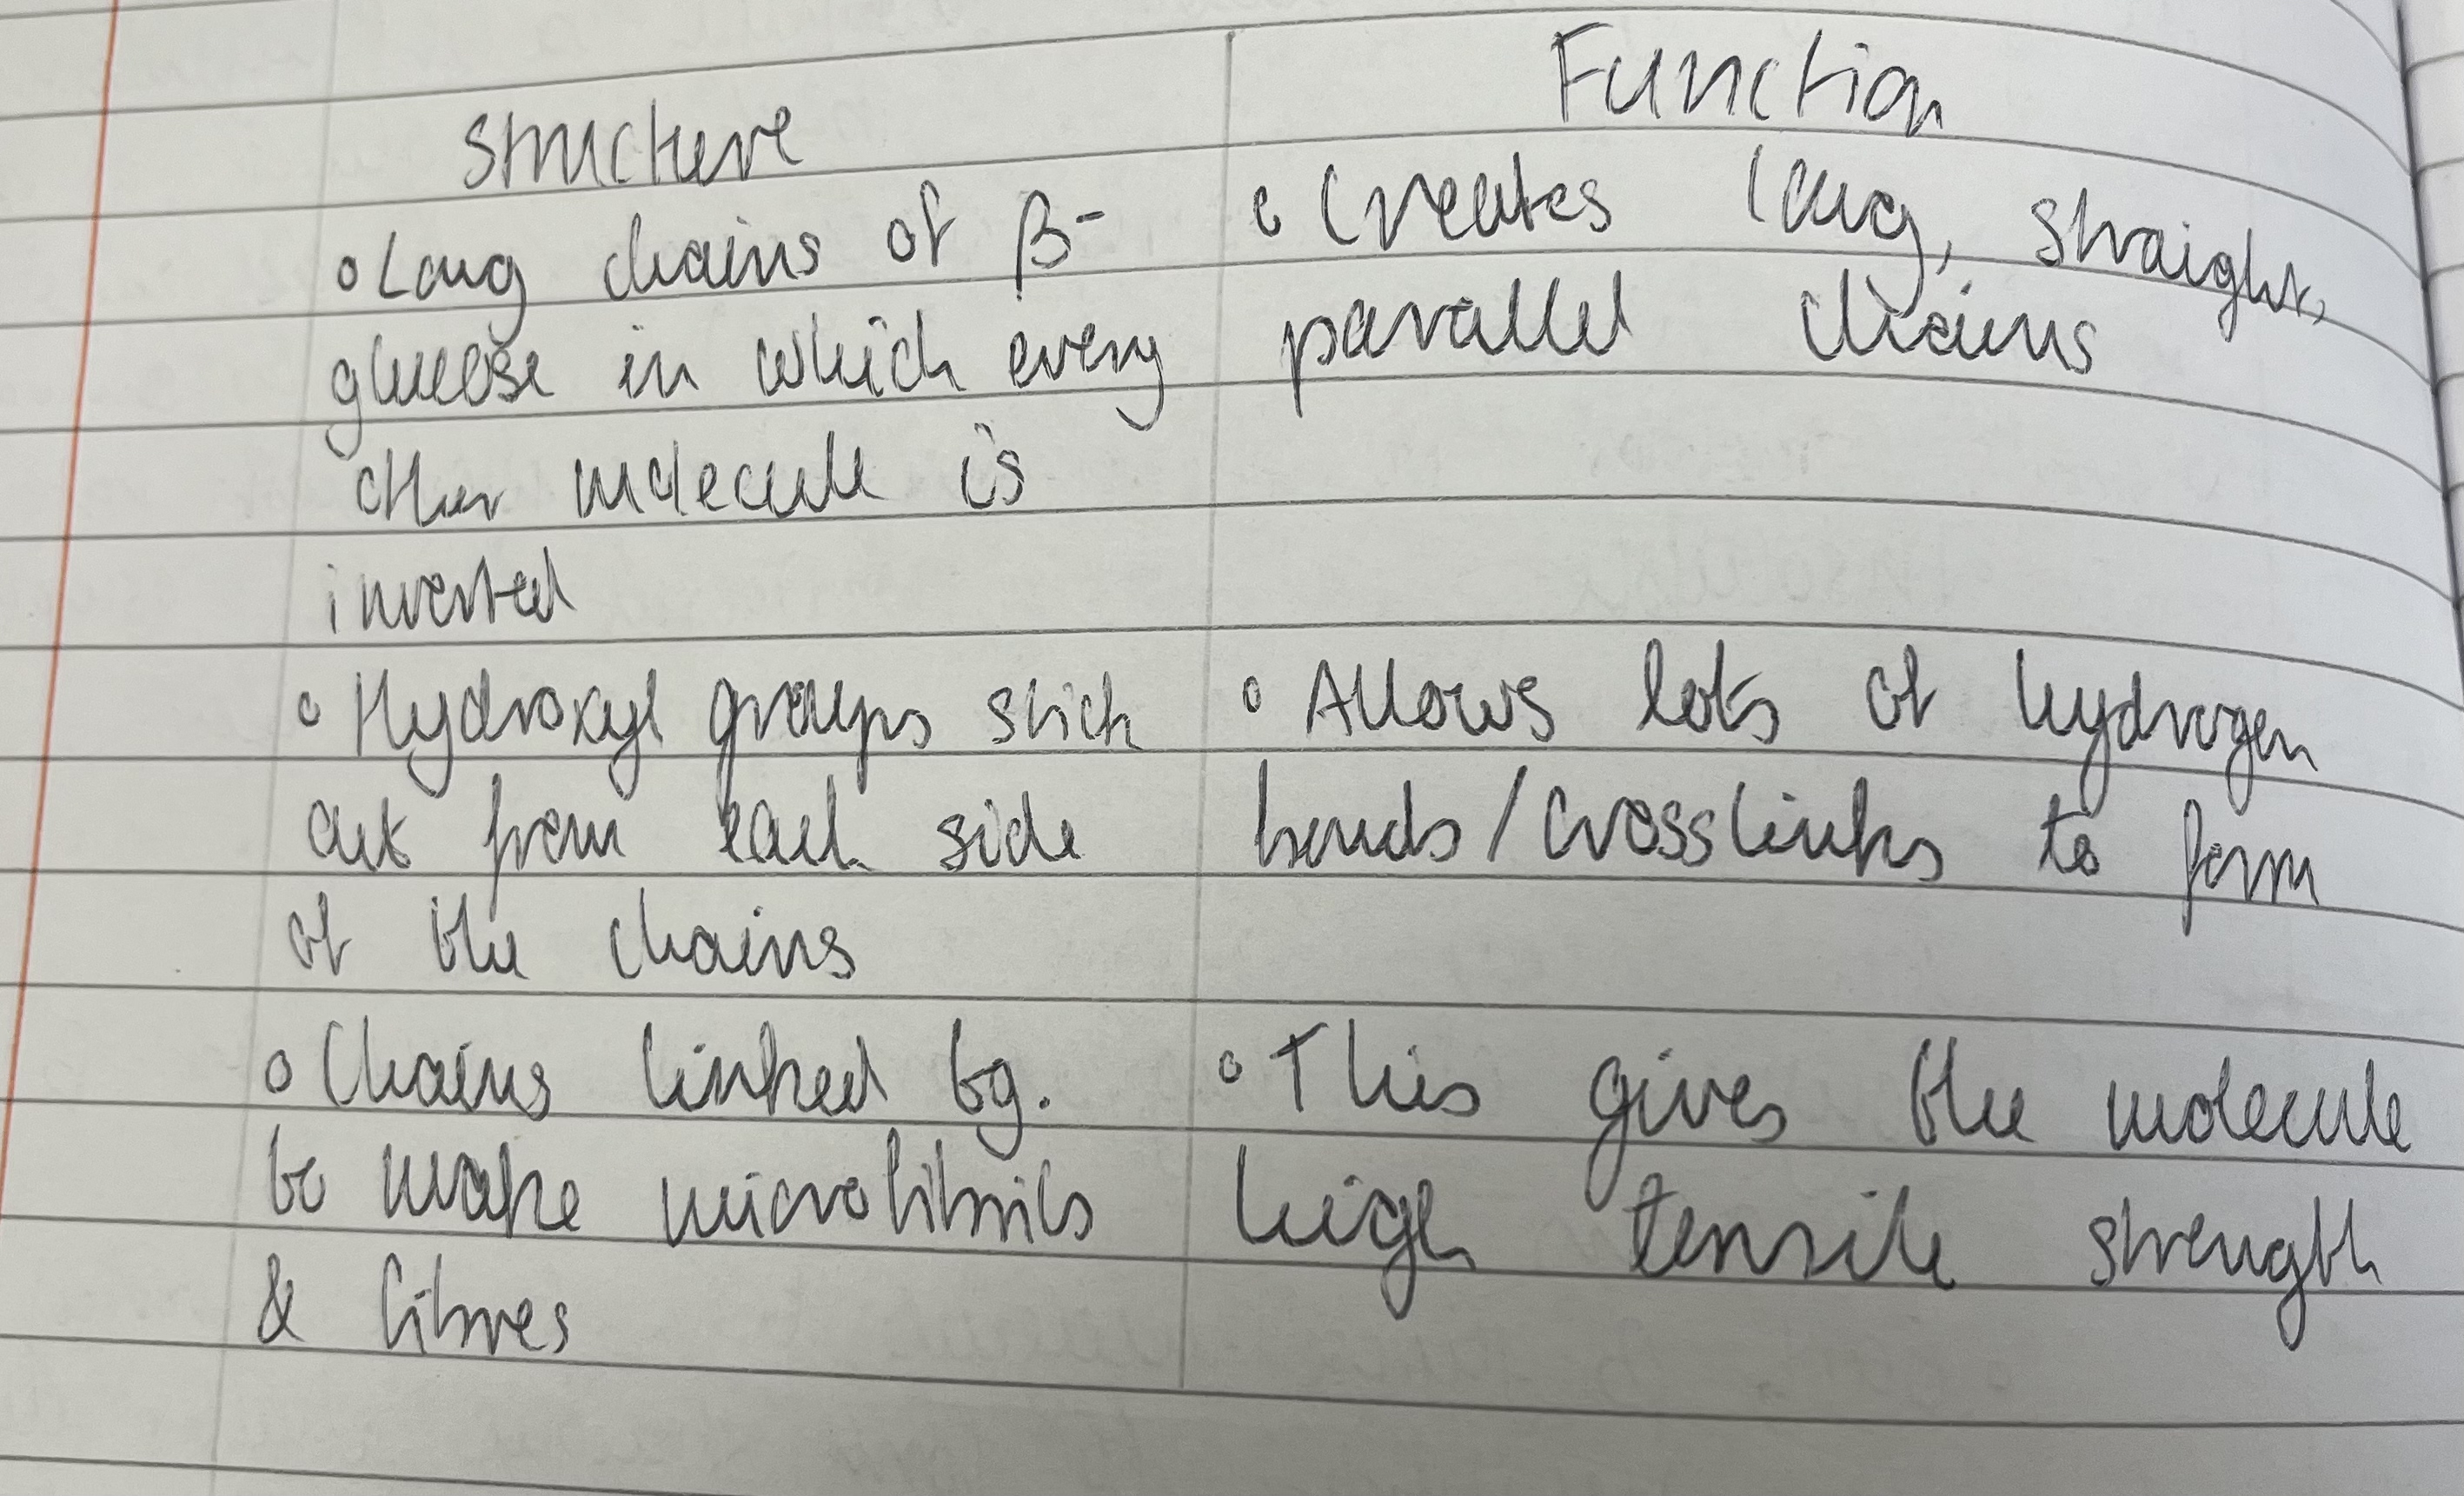 Structure
Function
• Long chains of β-
glucose in which every
other molecule is
inverted
• Creates long, straight,
parallel chains
• Hydroxyl groups stick
out from each side
of the chains
• Allows lots of hydrogen
bonds/crosslinks to form
• Chains linked tg.
to make microfibrils
& fibres
• This gives the molecule
high tensile strength